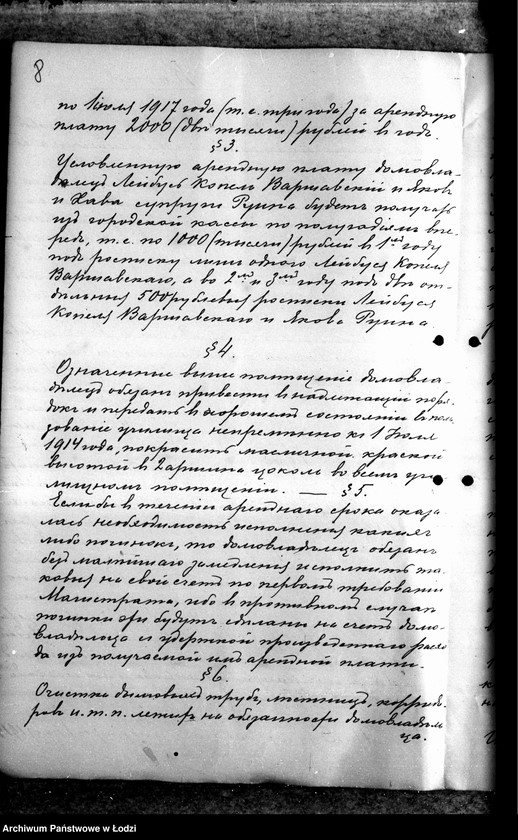 8
по 1 Июля 1917 года (т. е. три года) за арендную
плату 2000 (две тысячи) рублей в год.
§ 3.
Условленную арендную плату домовла-
делец Лейбусь Копель Варшавский и Яков
и Хава супруги Руина будет получать
из городской кассы по полугодиям впе-
ред, т. е. по 1000 (тысячи) рублей в 1ый году
под росписку лишь одного Лейбуся Копеля
Варшавскаго, а во 2ый и 3ий году под две от-
дельныя 500 рублевыя росписки Лейбуся
Копеля Варшавскаго и Якова Руина.
§ 4.
Означенные выше помещение домовла-
делец обязан привести в надлежащий поря-
док и передать в хорошем состоянии в поль-
зование училища непременно к 1 Июля
1914 года, покрасить масличной краской
высотой в 2 аршина цоколь во всем учи-
лищном помещении. — § 5.
Если бы в течении аренднаго срока оказа-
лась необходимость исполнения каких
либо починок, то домовладелец обязан
без малейшаго замедления исполнить та-
ковыя на свой счет по первому требованию
Магистрата, ибо в противном случае
починки эти будут сделаны на счет домо-
владельца с удержкой произведеннаго расхо-
да из получаемой им арендной платы.
§ 6.
Очистка дымовых труб, лестниц, коррида-
ров и. т. п. лежит на обязанности домовладель
ца.
Archiwum Państwowe w Łodzi